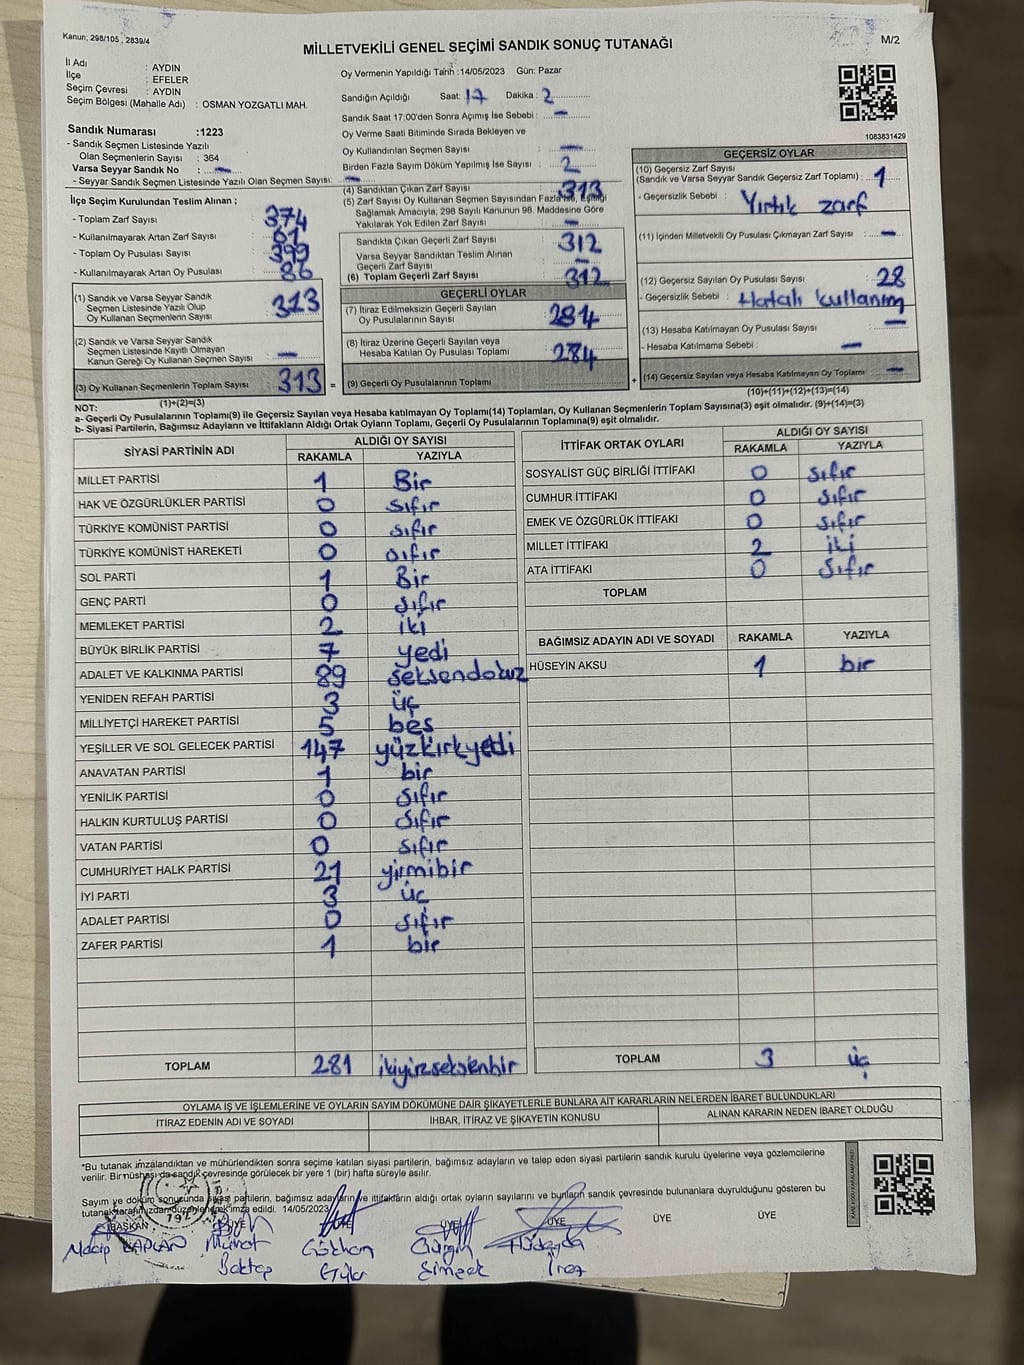 Kanun; 298/105 , 2839/4
MİLLETVEKİLİ GENEL SEÇİMİ SANDIK SONUÇ TUTANAĞI
M/2
İl Adı : AYDIN
İlçe : EFELER
Seçim Çevresi : AYDIN
Seçim Bölgesi (Mahalle Adı) : OSMAN YOZGATLI MAH.
Sandık Numarası :1223
- Sandık Seçmen Listesinde Yazılı
Olan Seçmenlerin Sayısı : 364
Varsa Seyyar Sandık No : —
- Seyyar Sandık Seçmen Listesinde Yazılı Olan Seçmen Sayısı: —
Oy Vermenin Yapıldığı Tarih :14/05/2023 Gün: Pazar
Sandığın Açıldığı Saat: 17 Dakika : 2
Sandık Saat 17:00'den Sonra Açımış İse Sebebi : —
Oy Verme Saati Bitiminde Sırada Bekleyen ve
Oy Kullandırılan Seçmen Sayısı : —
Birden Fazla Sayım Döküm Yapılmış İse Sayısı : 2
1083831429
İlçe Seçim Kurulundan Teslim Alınan ;
- Toplam Zarf Sayısı : 374
- Kullanılmayarak Artan Zarf Sayısı : 61
- Toplam Oy Pusulası Sayısı : 399
- Kullanılmayarak Artan Oy Pusulası : 86
(1) Sandık ve Varsa Seyyar Sandık
Seçmen Listesinde Yazılı Olup
Oy Kullanan Seçmenlerin Sayısı : 313
(2) Sandık ve Varsa Seyyar Sandık
Seçmen Listesinde Kayıtlı Olmayan
Kanun Gereği Oy Kullanan Seçmen Sayısı : —
(3) Oy Kullanan Seçmenlerin Toplam Sayısı 313 =
(1)+(2)=(3)
(4) Sandıktan Çıkan Zarf Sayısı : 313
(5) Zarf Sayısı Oy Kullanan Seçmen Sayısından Fazla ise, Eşitliği
Sağlamak Amacıyla, 298 Sayılı Kanunun 98. Maddesine Göre
Yakılarak Yok Edilen Zarf Sayısı : —
Sandıkta Çıkan Geçerli Zarf Sayısı : 312
Varsa Seyyar Sandıktan Teslim Alınan
Geçerli Zarf Sayısı : —
(6) Toplam Geçerli Zarf Sayısı : 312
GEÇERLİ OYLAR
(7) İtiraz Edilmeksizin Geçerli Sayılan
Oy Pusulalarının Sayısı : 284
(8) İtiraz Üzerine Geçerli Sayılan veya
Hesaba Katılan Oy Pusulası Toplamı : 284
(9) Geçerli Oy Pusulalarının Toplamı +
GEÇERSİZ OYLAR
(10) Geçersiz Zarf Sayısı
(Sandık ve Varsa Seyyar Sandık Geçersiz Zarf Toplamı) : 1
- Geçersizlik Sebebi : Yırtık zarf
(11) İçinden Milletvekili Oy Pusulası Çıkmayan Zarf Sayısı : —
(12) Geçersiz Sayılan Oy Pusulası Sayısı : 28
- Geçersizlik Sebebi : Hatalı kullanım
(13) Hesaba Katılmayan Oy Pusulası Sayısı : —
- Hesaba Katılmama Sebebi : —
(14) Geçersiz Sayılan veya Hesaba Katılmayan Oy Toplamı : —
(10)+(11)+(12)+(13)=(14)
NOT:
a- Geçerli Oy Pusulalarının Toplamı(9) ile Geçersiz Sayılan veya Hesaba katılmayan Oy Toplamı(14) Toplamları, Oy Kullanan Seçmenlerin Toplam Sayısına(3) eşit olmalıdır. (9)+(14)=(3)
b- Siyasi Partilerin, Bağımsız Adayların ve İttifakların Aldığı Ortak Oyların Toplamı, Geçerli Oy Pusulalarının Toplamına(9) eşit olmalıdır.
SİYASİ PARTİNİN ADI ALDIĞI OY SAYISI
RAKAMLA YAZIYLA
MİLLET PARTİSİ 1 Bir
HAK VE ÖZGÜRLÜKLER PARTİSİ 0 sıfır
TÜRKİYE KOMÜNİST PARTİSİ 0 sıfır
TÜRKİYE KOMÜNİST HAREKETİ 0 sıfır
SOL PARTİ 1 Bir
GENÇ PARTİ 0 sıfır
MEMLEKET PARTİSİ 2 iki
BÜYÜK BİRLİK PARTİSİ 7 yedi
ADALET VE KALKINMA PARTİSİ 89 seksendokuz
YENİDEN REFAH PARTİSİ 3 üç
MİLLİYETÇİ HAREKET PARTİSİ 5 beş
YEŞİLLER VE SOL GELECEK PARTİSİ 147 yüzkırkyedi
ANAVATAN PARTİSİ 1 bir
YENİLİK PARTİSİ 0 sıfır
HALKIN KURTULUŞ PARTİSİ 0 sıfır
VATAN PARTİSİ 0 sıfır
CUMHURİYET HALK PARTİSİ 21 yirmibir
İYİ PARTİ 3 üç
ADALET PARTİSİ 0 sıfır
ZAFER PARTİSİ 1 bir
TOPLAM 281 ikiyüzseksenbir
İTTİFAK ORTAK OYLARI ALDIĞI OY SAYISI
RAKAMLA YAZIYLA
SOSYALİST GÜÇ BİRLİĞİ İTTİFAKI 0 sıfır
CUMHUR İTTİFAKI 0 sıfır
EMEK VE ÖZGÜRLÜK İTTİFAKI 0 sıfır
MİLLET İTTİFAKI 2 iki
ATA İTTİFAKI 0 sıfır
TOPLAM
BAĞIMSIZ ADAYIN ADI VE SOYADI RAKAMLA YAZIYLA
HÜSEYİN AKSU 1 bir
TOPLAM 3 üç
OYLAMA İŞ VE İŞLEMLERİNE VE OYLARIN SAYIM DÖKÜMÜNE DAİR ŞİKAYETLERLE BUNLARA AİT KARARLARIN NELERDEN İBARET BULUNDUKLARI
İTİRAZ EDENİN ADI VE SOYADI İHBAR, İTİRAZ VE ŞİKAYETİN KONUSU ALINAN KARARIN NEDEN İBARET OLDUĞU
*Bu tutanak imzalandıktan ve mühürlendikten sonra seçime katılan siyasi partilerin, bağımsız adayların ve talep eden siyasi partilerin sandık kurulu üyelerine veya gözlemcilerine
verilir. Bir nüshası da sandık çevresinde görülecek bir yere 1 (bir) hafta süreyle asılır.
Sayım ve döküm sonucunda siyasi partilerin, bağımsız adayların ve ittifakların aldığı ortak oyların sayılarını ve bunların sandık çevresinde bulunanlara duyrulduğunu gösteren bu
tutanak tarafımızdan düzenlenerek imza edildi. 14/05/2023
BAŞKAN ÜYE ÜYE ÜYE ÜYE ÜYE ÜYE
KAPLAN Murat Gökhan
Şimşek